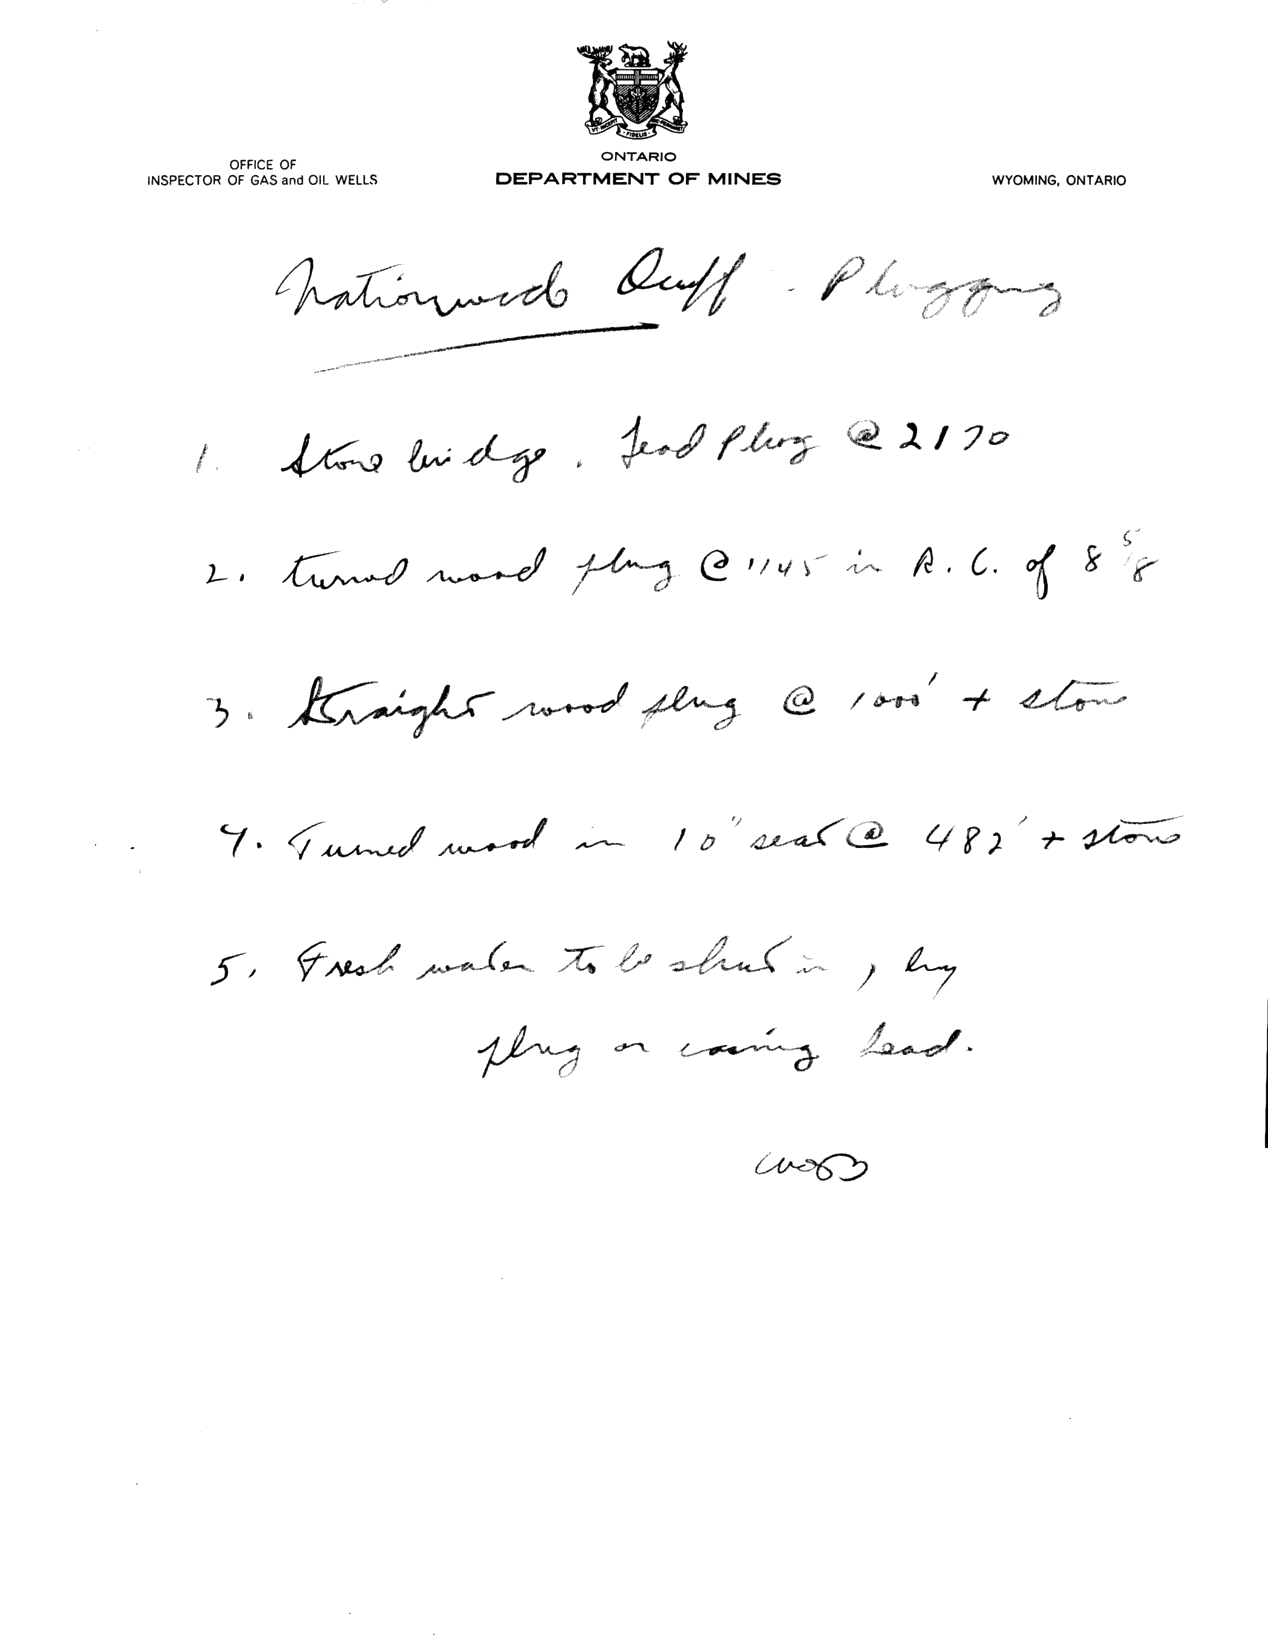 ONTARIO
OFFICE OF
INSPECTOR OF GAS and OIL WELLS
DEPARTMENT OF MINES
WYOMING, ONTARIO
Nationwide Duff - Plugging
1. Stone bridge. Lead Plug @ 2170
2. turned wood plug @ 1145 in R. C. of 8 5/8
3. Straight wood plug @ 1000' + stone
4. Turned wood in 10" seat @ 482' + stone
5. Fresh water to be shut in, by
plug or casing head.